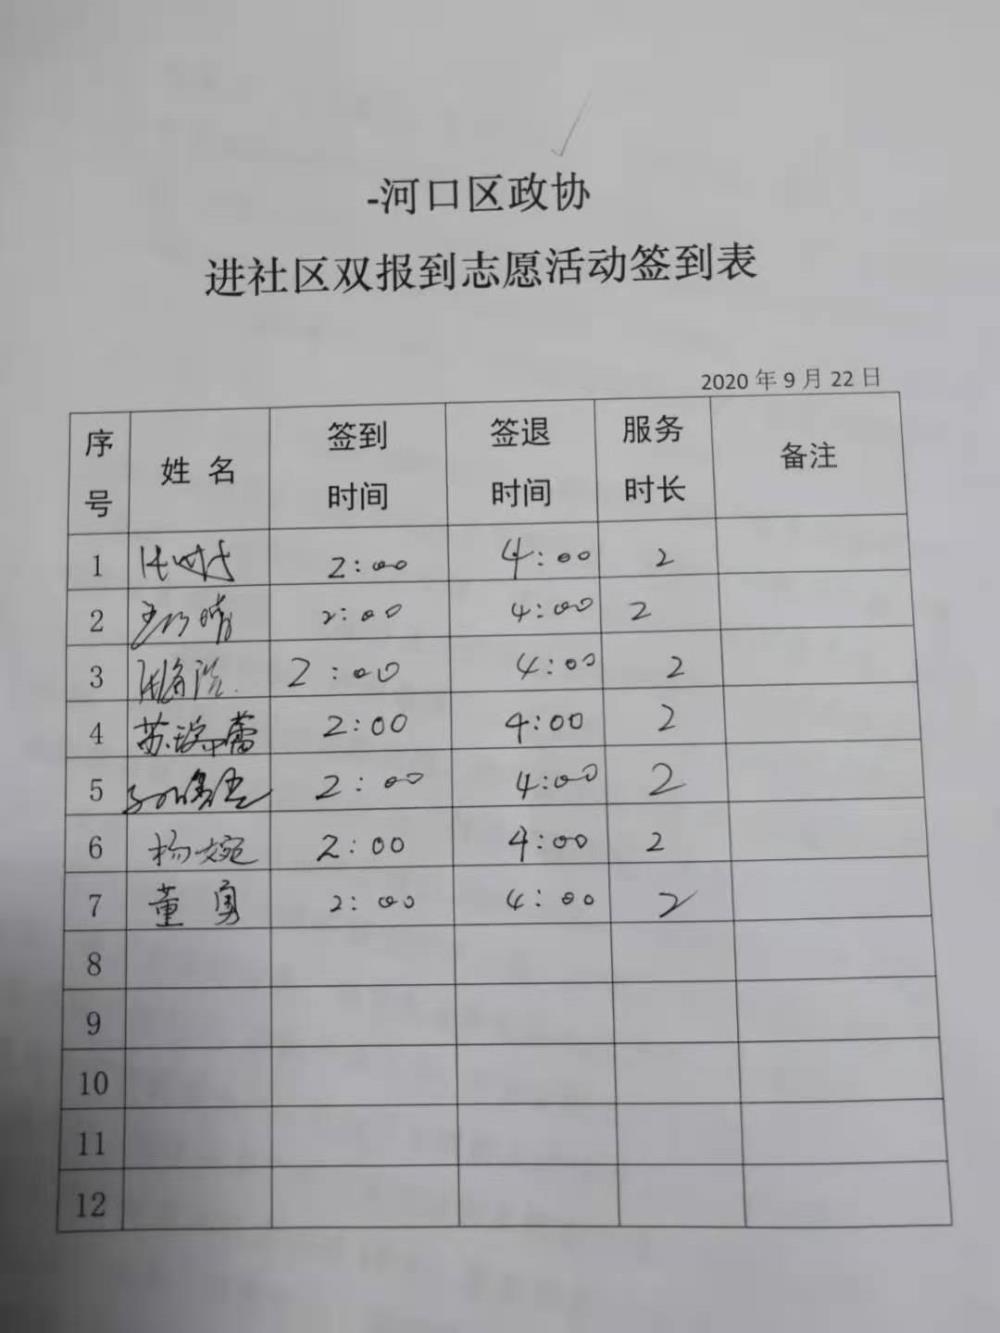 -河口区政协
进社区双报到志愿活动签到表
2020 年 9 月 22 日
序号 姓 名 签到时间 签退时间 服务时长 备注
1 2:00 4:00 2
2 2:00 4:00 2
3 2:00 4:00 2
4 苏 蕾 2:00 4:00 2
5 2:00 4:00 2
6 杨婉 2:00 4:00 2
7 董勇 2:00 4:00 2
8
9
10
11
12